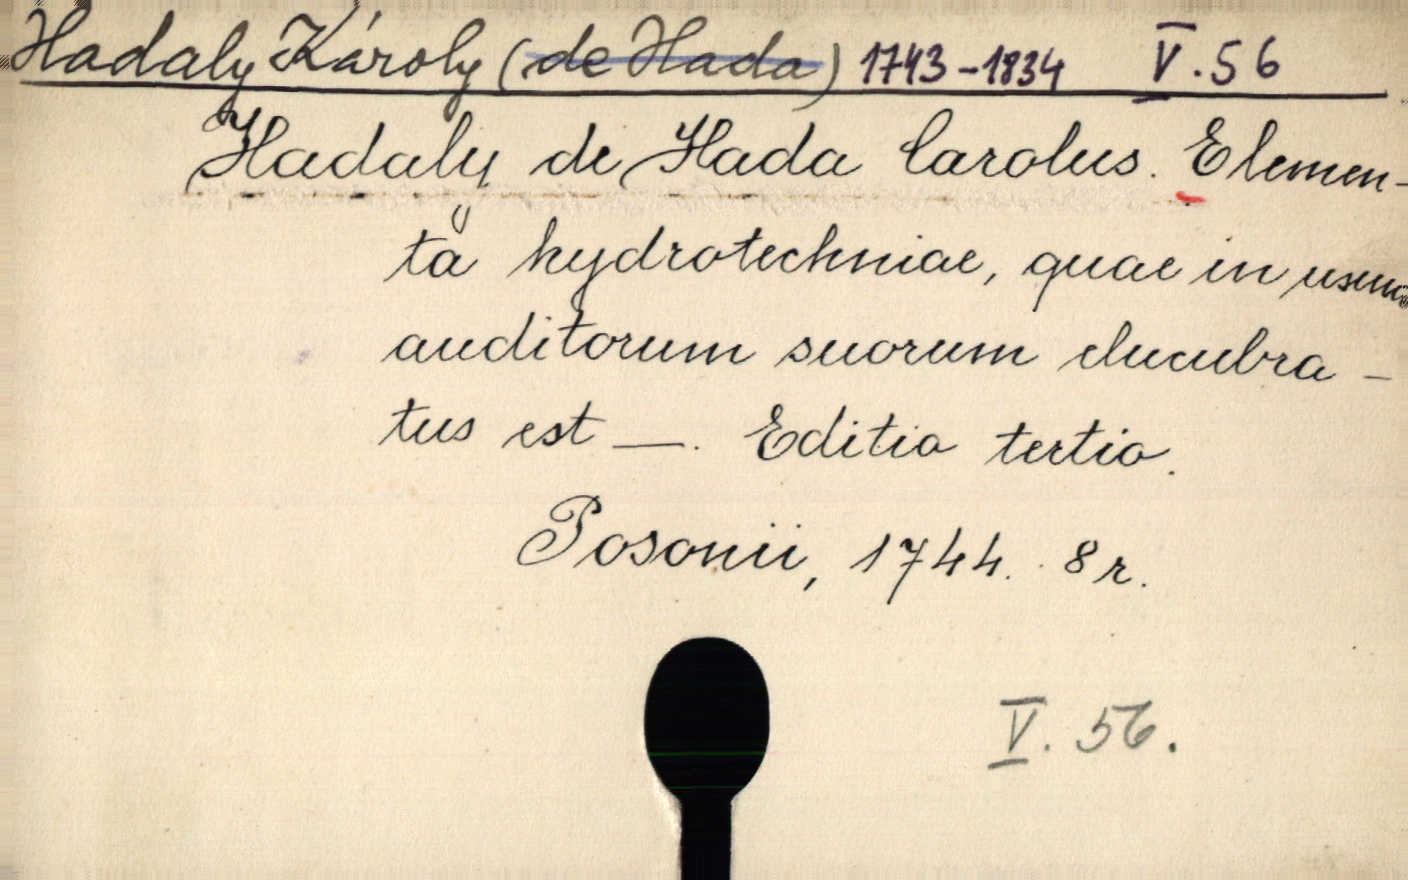 Hadaly Károly (de Hada) 1743-1834 V.56
Hadaly de Hada Carolus. Elemen-
ta hydrotechniae, quae in usum
auditorum suorum elucubra-
tus est —. Editio tertia.
Posonii, 1744. 8r.
V. 56.